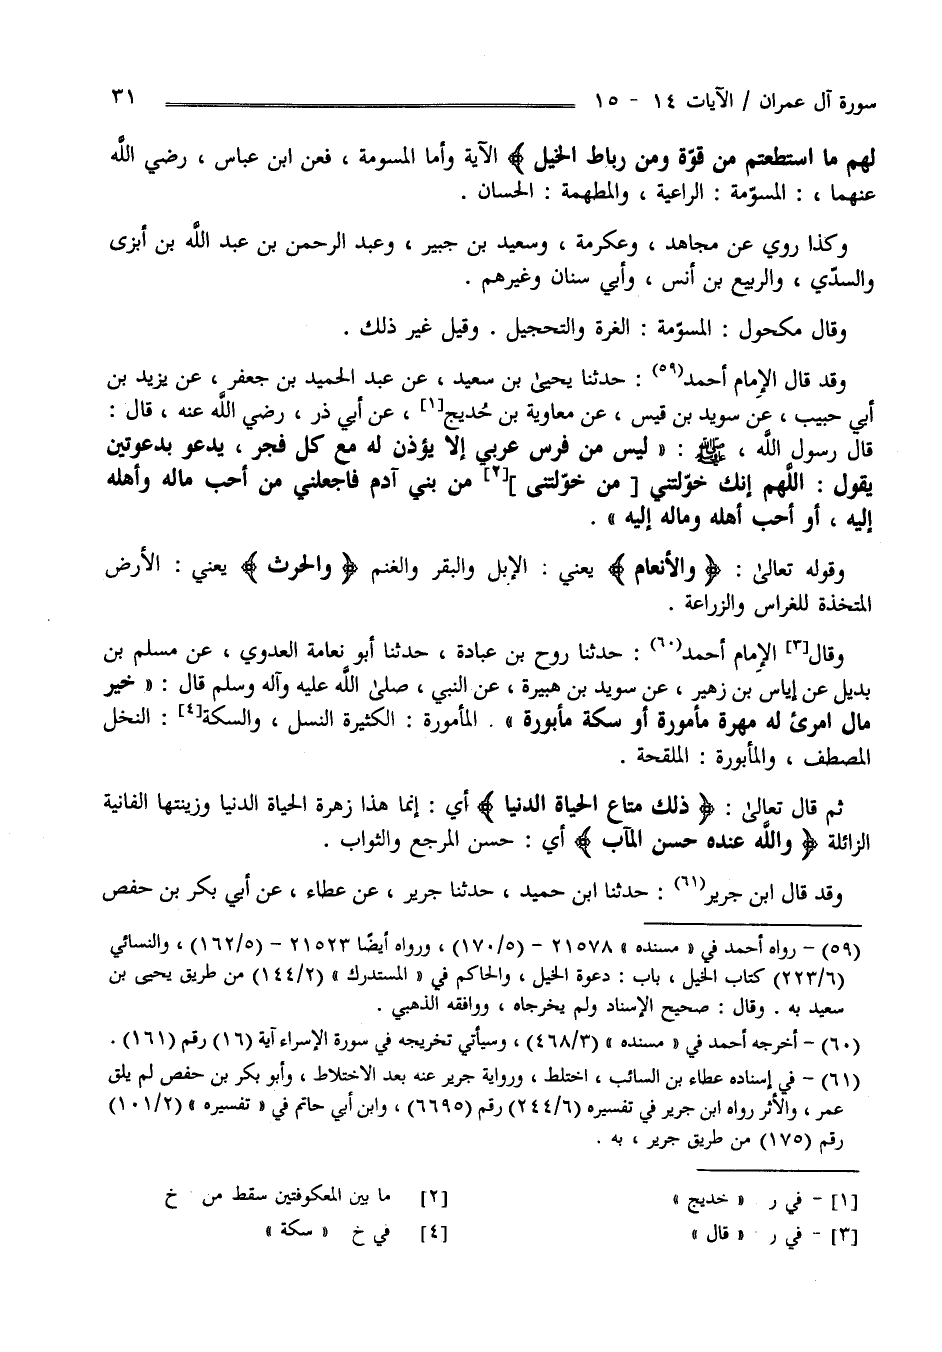 سورة آل عمران / الآيات ١٤ - ١٥ ٣١
لهم ما استطعتم من قوّة ومن رباط الخيل ﴾ الآية وأما المسومة ، فعن ابن عباس ، رضي اللَّه
عنهما ، : المسوّمة : الراعية ، والمطهمة : الحسان .
وكذا روي عن مجاهد ، وعكرمة ، وسعيد بن جبير ، وعبد الرحمن بن عبد اللَّه بن أبزى
والسدّي ، والربيع بن أنس ، وأبي سنان وغيرهم .
وقال مكحول : المسوّمة : الغرة والتحجيل . وقيل غير ذلك .
وقد قال الإمام أحمد(٥٩) : حدثنا يحيىٰ بن سعيد ، عن عبد الحميد بن جعفر ، عن يزيد بن
أبي حبيب ، عن سويد بن قيس ، عن معاوية بن حُديج[١] ، عن أبي ذر ، رضي اللَّه عنه ، قال :
قال رسول اللَّه ، ﷺ : « ليس من فرس عربي إلا يؤذن له مع كل فجر ، يدعو بدعوتين
يقول : اللَّهم إنك خوّلتني [ من خوّلتنى ][٢] من بني آدم فاجعلني من أحب ماله وأهله
إليه ، أو أحب أهله وماله إليه » .
وقوله تعالىٰ : ﴿ والأنعام ﴾ يعني : الإبل والبقر والغنم ﴿ والحرث ﴾ يعني : الأرض
المتخذة للغراس والزراعة .
وقال[٣] الإمام أحمد(٦٠) : حدثنا روح بن عبادة ، حدثنا أبو نعامة العدوي ، عن مسلم بن
بديل عن إياس بن زهير ، عن سويد بن هبيرة ، عن النبي ، صلىٰ اللَّه عليه وآله وسلم قال : « خير
مال امرئ له مهرة مأمورة أو سكة مأبورة » . المأمورة : الكثيرة النسل ، والسكة[٤] : النخل
المصطف ، والمأبورة : الملقحة .
ثم قال تعالىٰ : ﴿ ذلك متاع الحياة الدنيا ﴾ أي : إنما هذا زهرة الحياة الدنيا وزينتها الفانية
الزائلة ﴿ واللَّه عنده حسن المآب ﴾ أي : حسن المرجع والثواب .
وقد قال ابن جرير(٦١) : حدثنا ابن حميد ، حدثنا جرير ، عن عطاء ، عن أبي بكر بن حفص
(٥٩) – رواه أحمد في « مسنده » ٢١٥٧٨ – (١٧٠/٥) ، ورواه أيضًا ٢١٥٢٣ – (١٦٢/٥) ، والنسائي
(٢٢٣/٦) كتاب الخيل ، باب : دعوة الخيل ، والحاكم في « المستدرك » (١٤٤/٢) من طريق يحيى بن
سعيد به . وقال : صحيح الإسناد ولم يخرجاه ، ووافقه الذهبي .
(٦٠) – أخرجه أحمد في « مسنده » (٤٦٨/٣) ، وسيأتي تخريجه في سورة الإسراء آية (١٦) رقم (١٦١) .
(٦١) – في إسناده عطاء بن السائب ، اختلط ، ورواية جرير عنه بعد الاختلاط ، وأبو بكر بن حفص لم يلق
عمر ، والأثر رواه ابن جرير في تفسيره (٢٤٤/٦) رقم (٦٦٩٥) ، وابن أبي حاتم في « تفسيره » (١٠١/٢)
رقم (١٧٥) من طريق جرير ، به .
[١] – في ر « خديج » [٢] ما بين المعكوفتين سقط من خ
[٣] – في ر « قال » [٤] في خ « سكة »